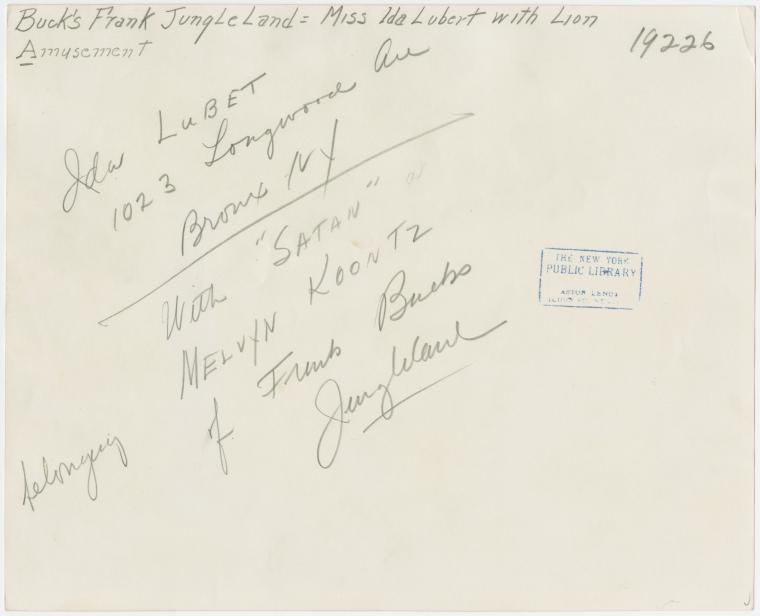 Buck's Frank Jungle Land = Miss Ida Lubert with Lion
Amusement
19226
Ida LUBET
1023 Longwood Ave
Bronx NY
With "SATAN"
MELVYN KOONTZ
of Frank Bucks
Jungleland
belonging
THE NEW YORK
PUBLIC LIBRARY
ASTOR LENOX